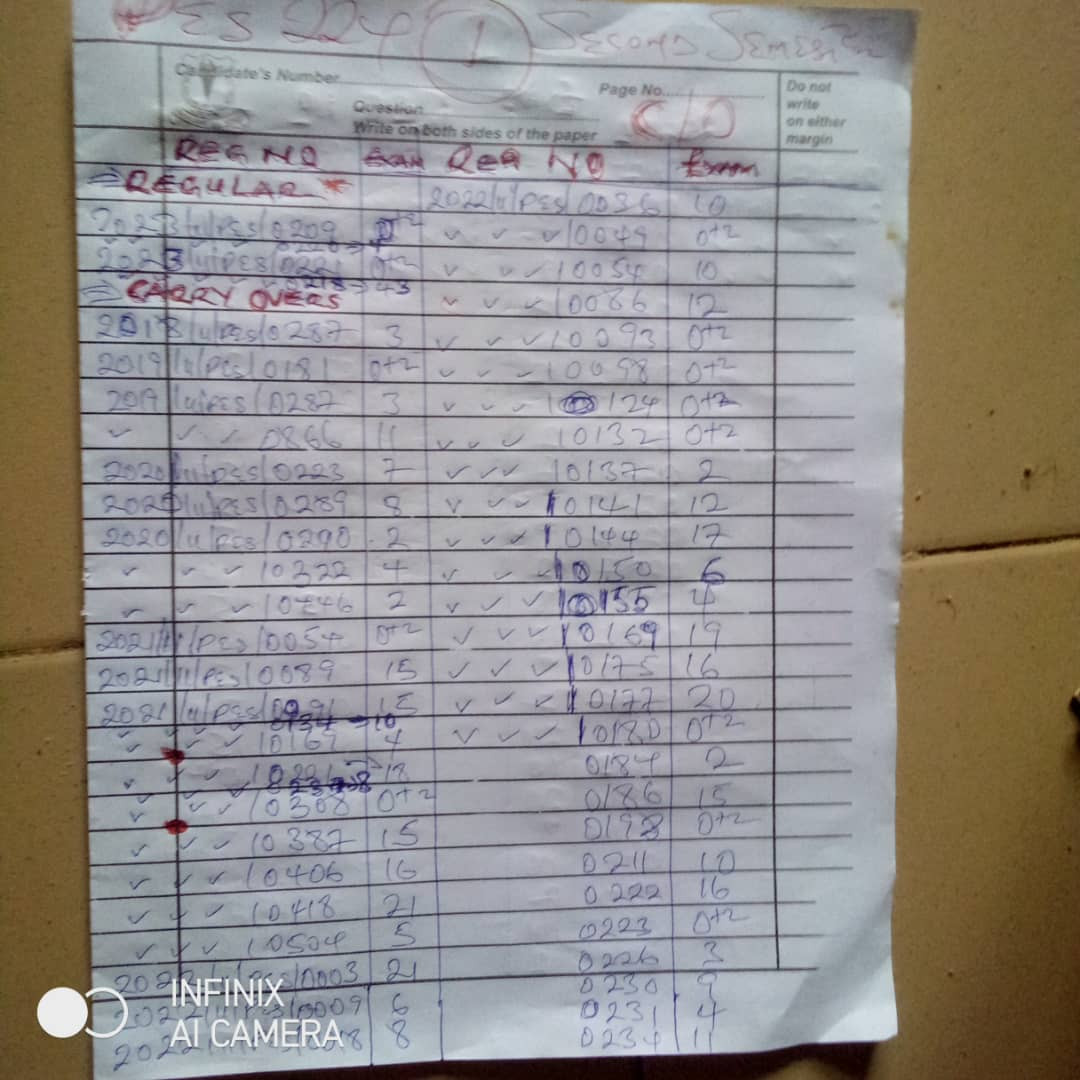 ES 224 1 SECOND SEMESTER
Candidate's Number
Page No.....
Do not
write
on either
margin
Question
Write on both sides of the paper
C/O
REG NO EXAM REG NO Exam
⇒ REGULAR * 2022/u/PES/0036 10
2023/u/PES/0209 ✓ ✓ ✓/0049 0+2
2023/u/PES/0221 0+2 ✓ ✓ ✓/0054 10
0218 → 43
⇒ CARRY OVERS ✓ ✓ ✓ /0086 12
2018/u/PES/0287 3 ✓ ✓ ✓/0093 0+2
2019/u/PES/0181 0+2 ✓ ✓ ✓ /0098 0+2
2019/u/PES/0287 3 ✓ ✓ ✓ /0124 0+2
✓ ✓ ✓ 0866 11 ✓ ✓ ✓ /0132 0+2
2020/u/PES/0223 7 ✓ ✓ ✓ /0137 2
2020/u/PES/0289 8 ✓ ✓ ✓ /0141 12
2020/u/PES/0290 2 ✓ ✓ ✓ /0144 17
✓ ✓ ✓ /0322 4 ✓ ✓ ✓ /0150 6
✓ ✓ ✓ /0446 2 ✓ ✓ ✓ /0155 4
2021/u/PES/0054 0+2 ✓ ✓ ✓ /0169 19
2021/u/PES/0089 15 ✓ ✓ ✓ /0175 16
2021/u/PES/0091 15 ✓ ✓ ✓ /0177 20
0134 → 10
✓ ✓ ✓ /0167 4 ✓ ✓ ✓ /0180 0+2
✓ ✓ ✓ /0221 18 0184 2
✓ ✓ ✓ /0308 0+2 0186 15
✓ ✓ ✓ /0387 15 0198 0+2
✓ ✓ ✓ /0406 16 0211 10
✓ ✓ ✓ /0418 21 0222 16
✓ ✓ ✓ /0504 5 0223 0+2
2022/u/PES/0003 21 0226 3
2022/u/PES/0009 6 0230 9
0231 4
2022 8 0234 11
INFINIX
AI CAMERA